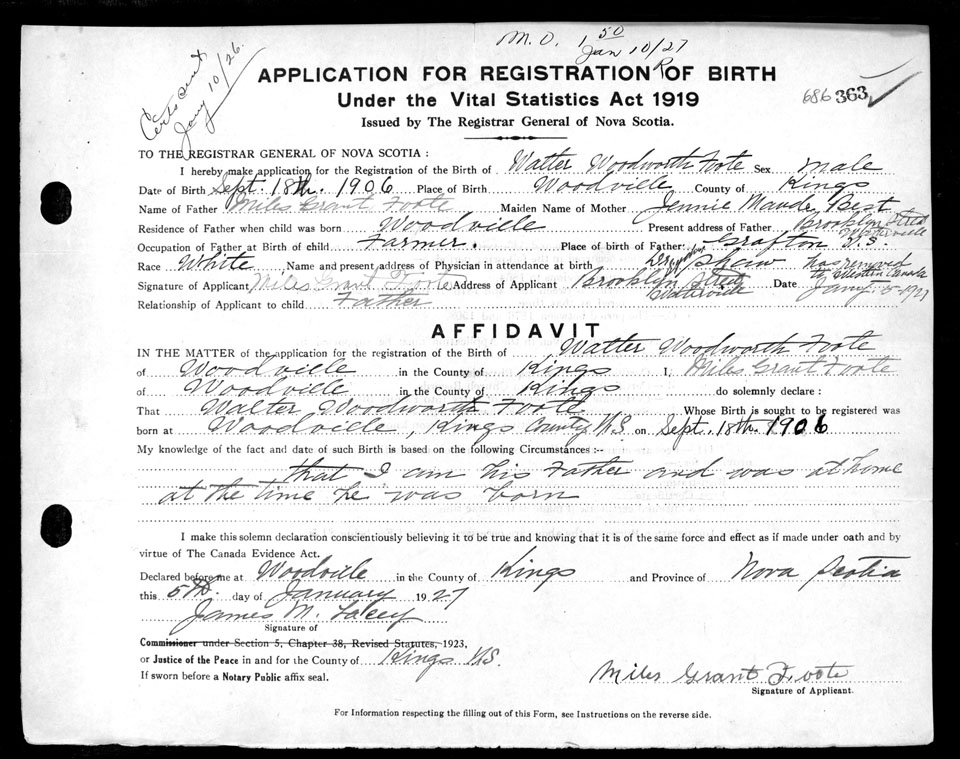 M.O. 1 50
Jan 10/27
Certs sent
Jany 10/26.
APPLICATION FOR REGISTRATION R OF BIRTH
Under the Vital Statistics Act 1919
686 363
Issued by The Registrar General of Nova Scotia.
TO THE REGISTRAR GENERAL OF NOVA SCOTIA :
I hereby make application for the Registration of the Birth of Walter Woodworth Foote Sex male
Date of Birth Sept. 18th. 1906 Place of Birth Woodville County of Kings
Name of Father Miles Grant Foote Maiden Name of Mother Jennie Maude Best
Residence of Father when child was born Woodville Present address of Father Brooklyn Street Waterville
Occupation of Father at Birth of child Farmer. Place of birth of Father Grafton N.S.
Race White Name and present address of Physician in attendance at birth Shaw has removed to Western Canada
Signature of Applicant Miles Grant Foote Address of Applicant Brooklyn Street Waterville Date Jany 5-1927
Relationship of Applicant to child Father
AFFIDAVIT
IN THE MATTER of the application for the registration of the Birth of Walter Woodworth Foote
of Woodville in the County of Kings I, Miles Grant Foote
of Woodville in the County of Kings do solemnly declare :
That Walter Woodworth Foote Whose Birth is sought to be registered was
born at Woodville, Kings County N.S. on Sept. 18th. 1906
My knowledge of the fact and date of such Birth is based on the following Circumstances :--
that I am his Father and was at home
at the time he was born
I make this solemn declaration conscientiously believing it to be true and knowing that it is of the same force and effect as if made under oath and by
virtue of The Canada Evidence Act.
Declared before me at Woodville in the County of Kings and Province of Nova Scotia
this 5th. day of January 1927
James M. Lacey
Signature of
Commissioner under Section 5, Chapter 38, Revised Statutes, 1923,
or Justice of the Peace in and for the County of Kings N.S.
If sworn before a Notary Public affix seal.
Miles Grant Foote
Signature of Applicant.
For Information respecting the filling out of this Form, see Instructions on the reverse side.